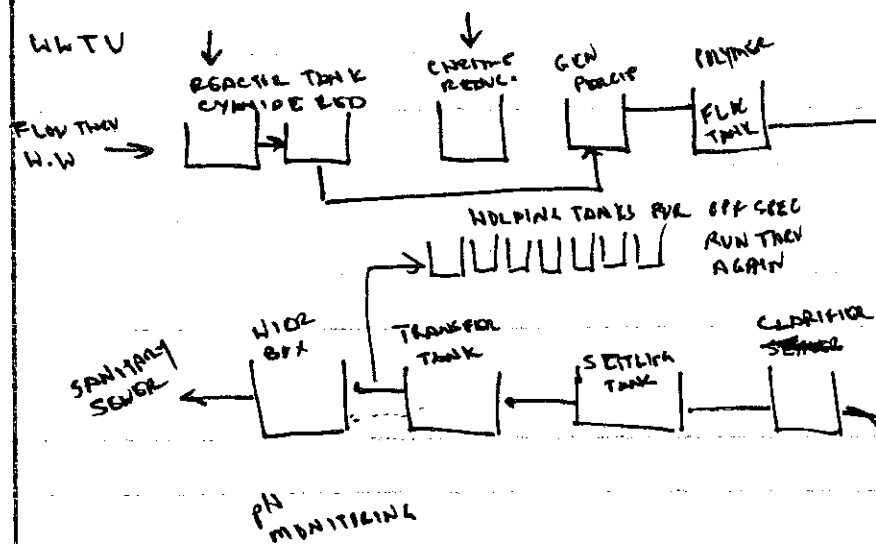 WWTU
REACTER TANK
CYANIDE RED
CHROME
REDUC.
GEN
PERCIP
POLYMER
FLOW THRU
W.W
FLOC
TANK
HOLDING TANKS FOR OFF SPEC
RUN THRU
AGAIN
WIER
BOX
TRANSFER
TANK
SETTLING
TANK
CLARIFIER
SANITARY
SEWER
pH
MONITORING